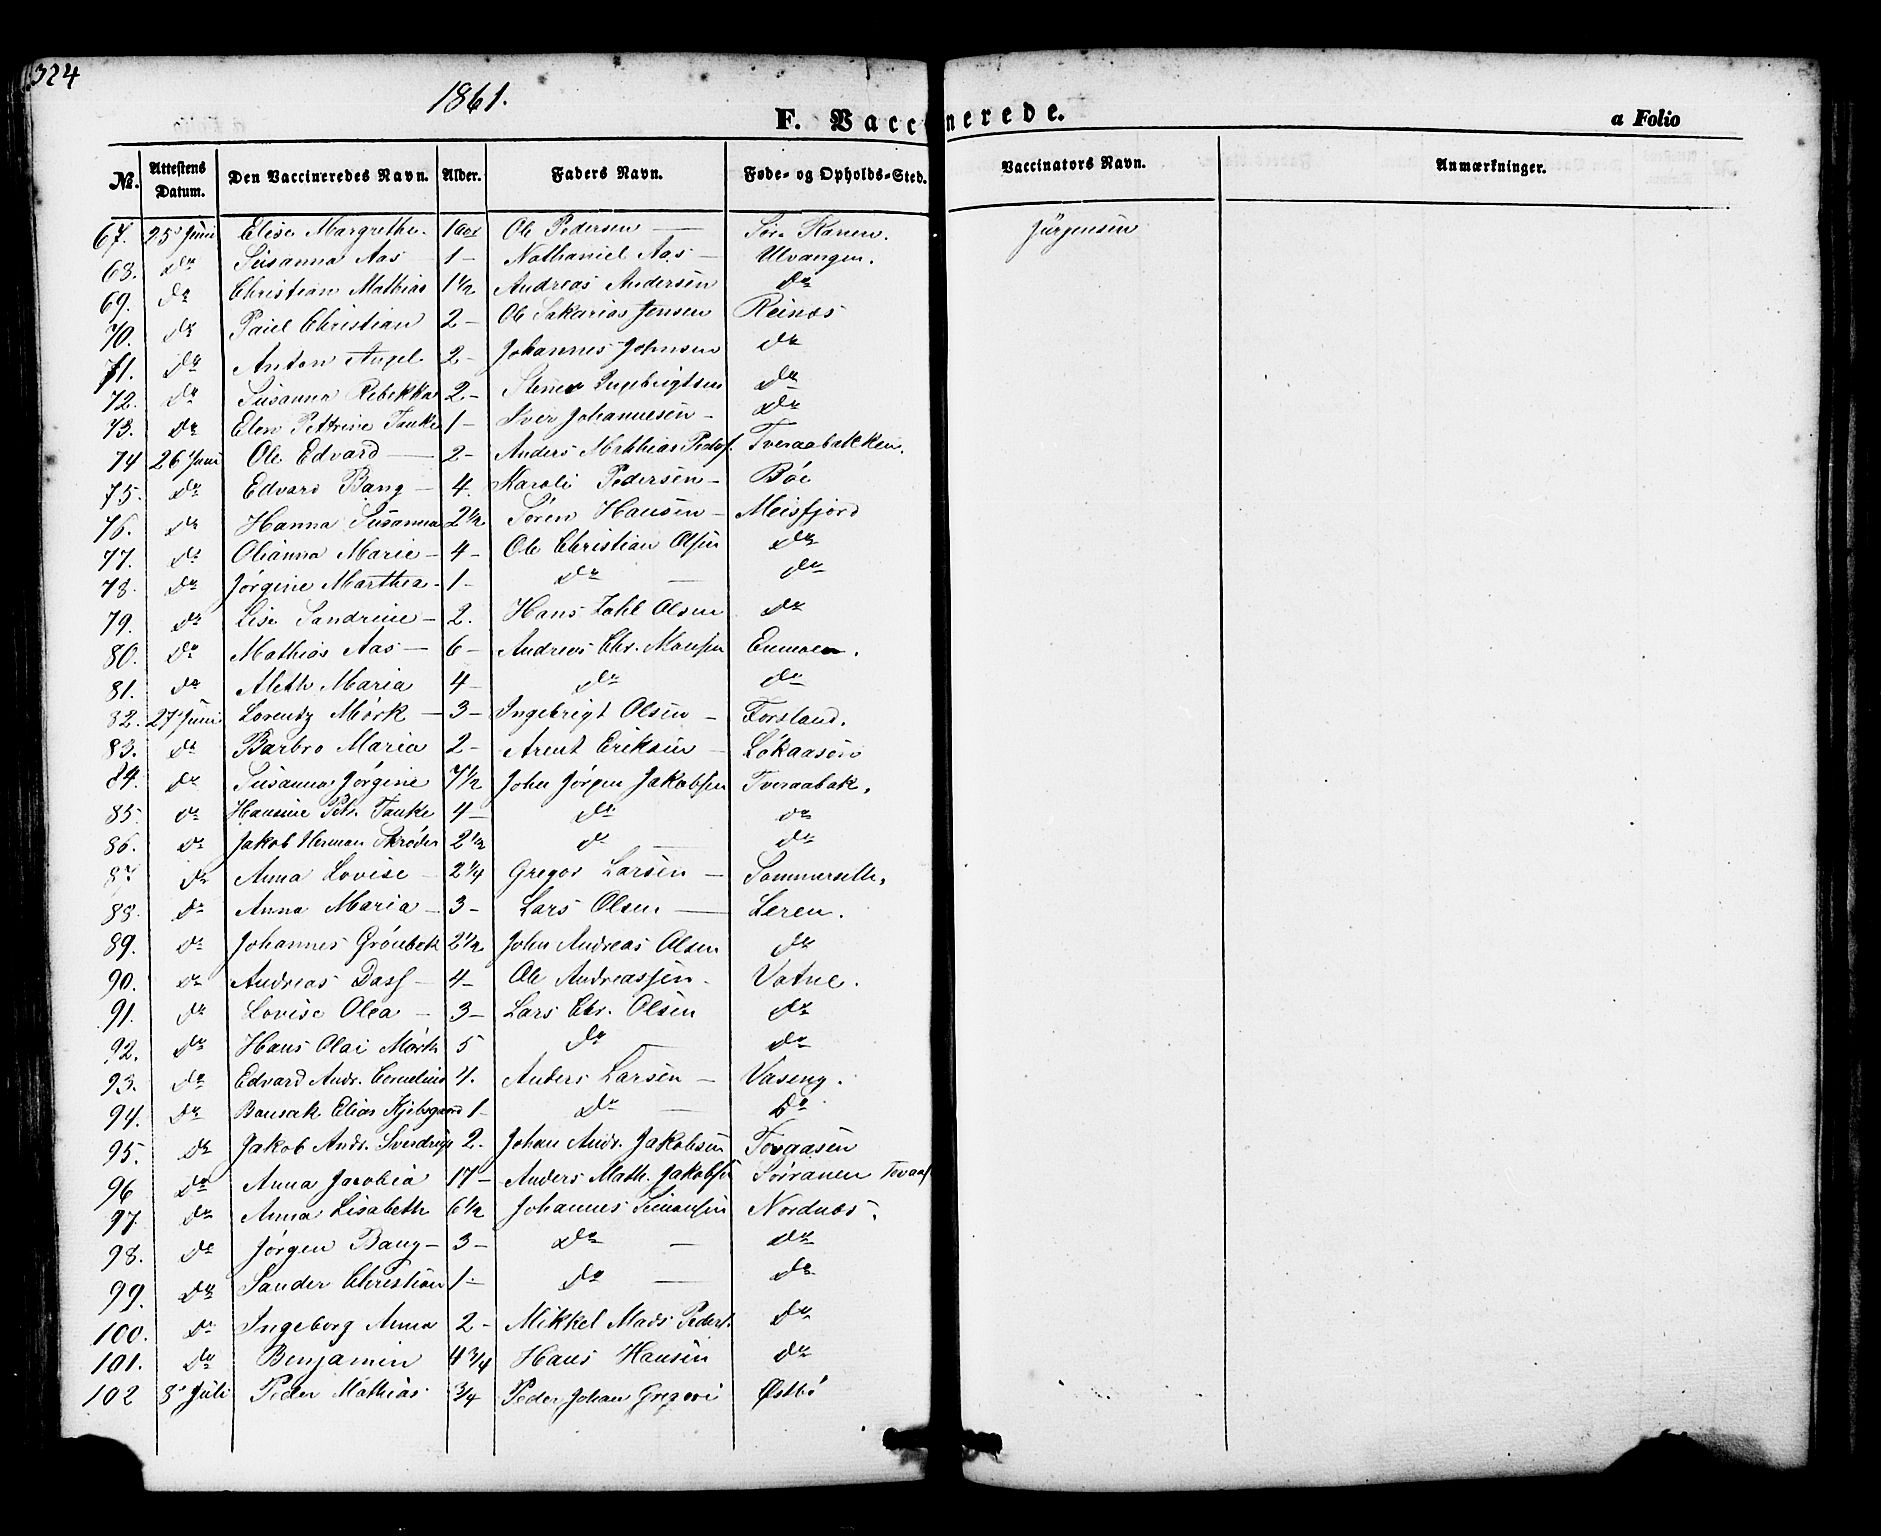 324
1861.
F. Vaccinerede.
a Folio
No. Attestens Datum. Den Vaccineredes Navn. Alder. Faders Navn. Føde- og Opholds-Sted. Vaccinators Navn. Anmærkninger.
67. 25 Juni Elise Margrethe 1 Ole Pedersen — Sør Jürgensen
68. do Susanna Aas 1 - Nathaniel Aas - Ulvangen.
69. do Christian Mathias 1 1/2 Andreas Andersen do
70. do Christian 2 - Ole Sakarias Jensen Reinæs
71. do Anton 2 - Johannes Johnsen do
72. do Susanna Rebekka 2 - Ingebrigtsen do
73. do Elen Petrine Tanke 1 - Iver Johannesen - do
74 26 Juni Ole Edvard — 2 - Anders Mathias Peders. Tveraabakken.
75. do Edvard Bang - 4. Karoli Pedersen - Bøe
76. do Hanna Susanna 2 1/2 Sören Hansen - Meisfjord
77. do Olianna Marie - 4 - Ole Christian Olsen do
78. do Jørgine Marthea - 1 - do — do
79. do Lise Sandrine - 2. Hans Zahl Olsen do
80. do Mathias Aas - 6 - Andreas Chr. do
81. do Aleth Maria 4 - do do
82. 27 Juni Lorentz Mörk - 3 - Ingebrigt Olsen - Forsland.
83. do Barbro Maria 2 - Arent Eriksen - Lökaasen
84. do Susanna Jörgine 7 1/2 John Jörgen Jakobsen Tveraabak.
85. do Hansine Petr. Tanke 4 - do do
86. do Jakob Herman Skröder 2 1/2 do — do
87 do Anna Lovise - 2 1/4 Gregor Larsen - Sommerseth.
88. do Anna Maria - 3 - Lars Olsen — Leren.
89. do Johannes Grönbek 2 1/2 John Andreas Olsen do
90. do Andreas Dass - 4 - Ole Andreassen - Vatne.
91. do Lovise Olea - 3 - Lars Chr. Olsen do
92. do Hans Olai Mörk 5 do — do
93. do Edvard Andr. Cornelius 4. Anders Larsen - Vaseng.
94. do Elias 1 - do — do
95. do Jakob Andr. Sverdrup 2. Johan Andr. Jakobsen
96 do Anna Jacobia 17 - Anders Math. Jakobsen
97 do Anna Lisabeth 6 1/2 Johannes Simonsen Nordnæs.
98. do Jørgen Bang - 3 - do — do
99. do Sander Christian 1 - do — do
100. do Ingeborg Anna 2 - Mikkel Mads Peders. do
101. do Benjamin 4 3/4 Hans Hansen do
102 3 Juli Peder Mathias 3/4 Peder Johan Gregori Østbö